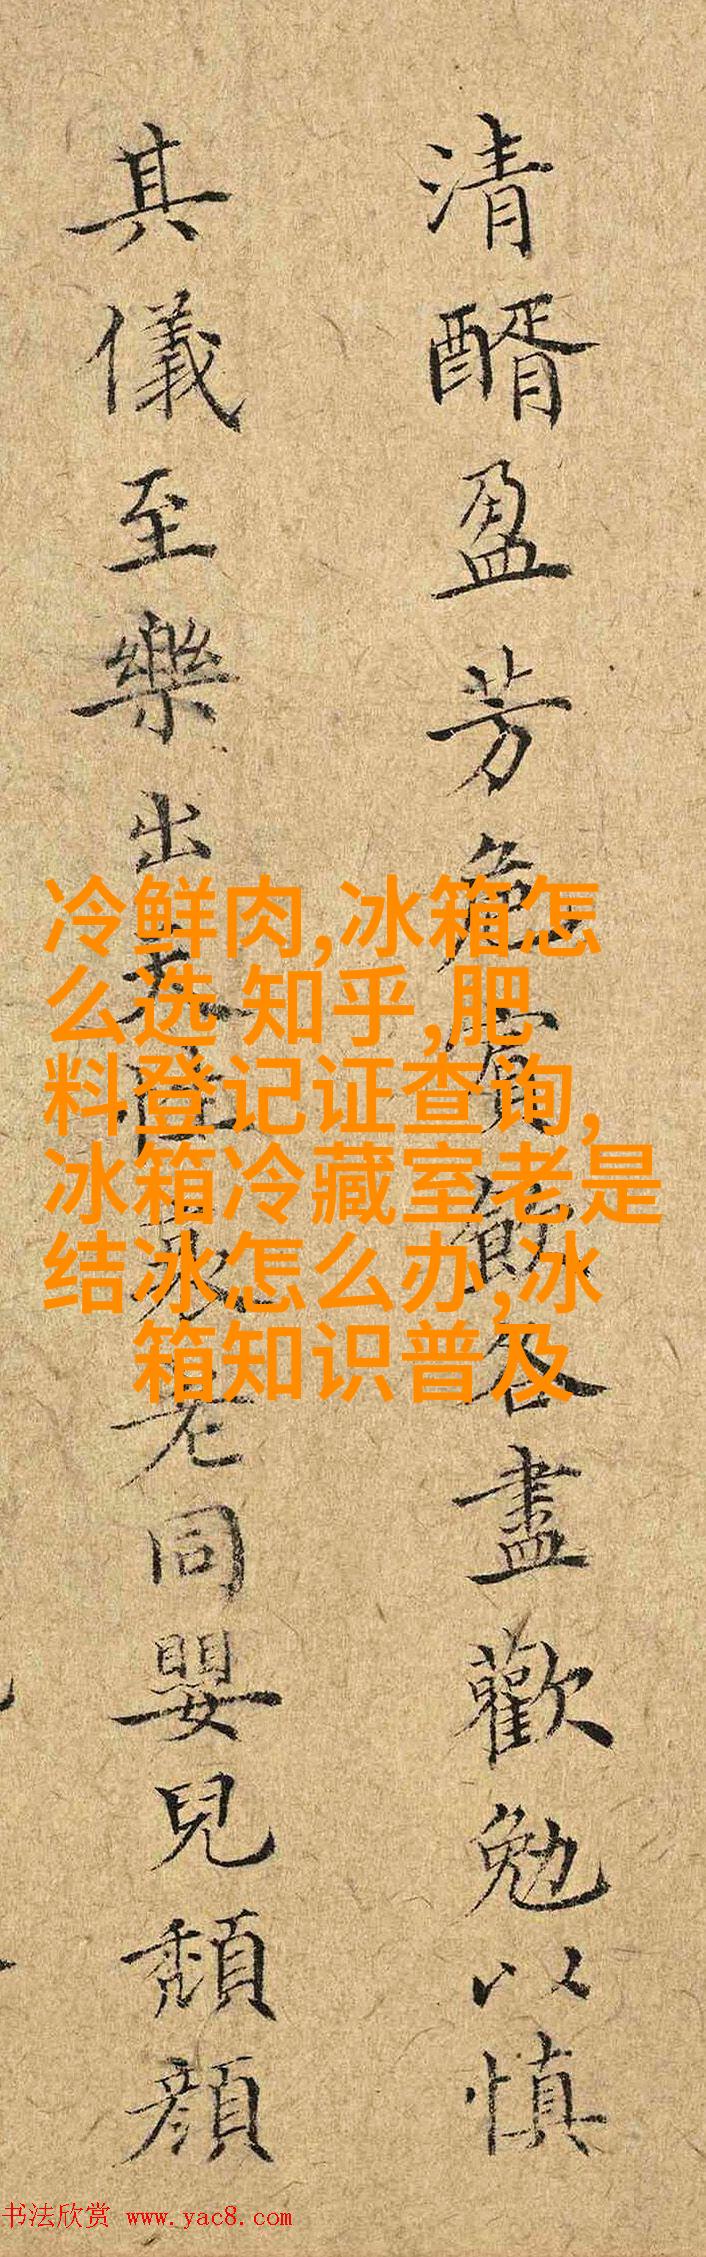 清醑盈芳賓各盡歡勉以慎
其儀至樂出天性老同嬰兒頹顏
冷鲜肉,冰箱怎
么选 知乎,肥
料登记证查询,
冰箱冷藏室老是
结冰怎么办,冰
箱知识普及
书法欣赏 www.yac8.com